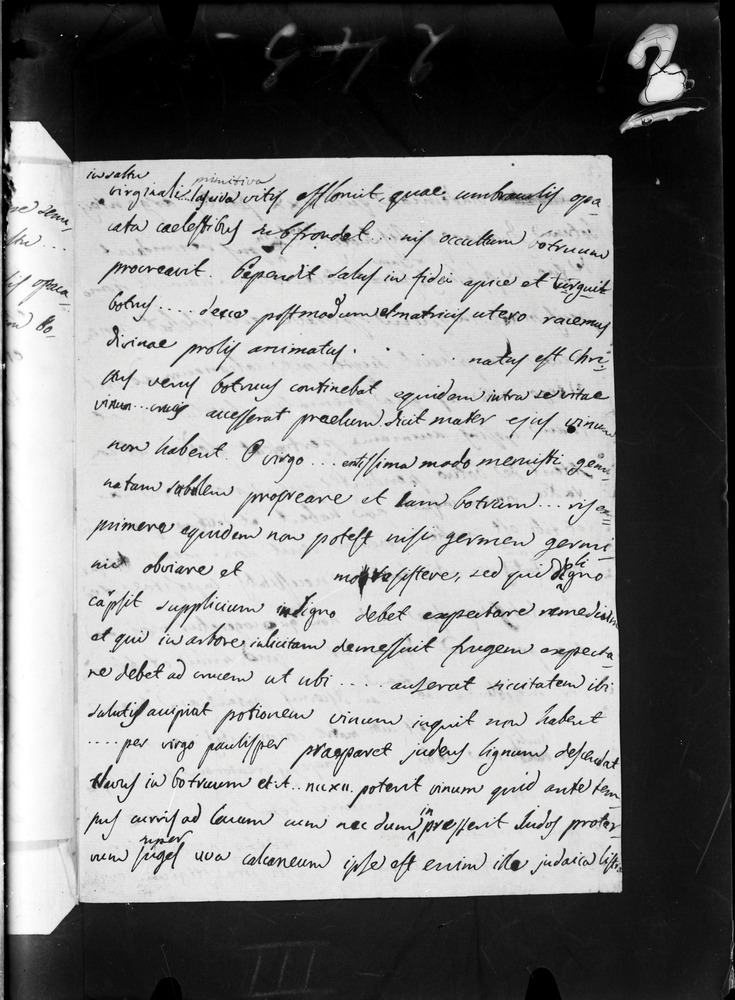 in saltu
primitiva
virginali vitis effloruit, quae umbraculis opa-
cata caelestibus subfrondet ... nis occultum botruum
procreavit. Pependit salus in fidei apice et turguit
botrus .... dece postmodum et matricis utero racemus
divinae prolis animatus. . . . natus est Chri-
stus verus botrus continebat equidem intra se vitae
vinum ... crucis accesserat praelum dicit mater ejus vinum
non habent. O virgo ... entissima modo meruisti gemi-
natam sobolem procreare et tam botrum ... vis ex-
primere equidem non potest nisi germen germi-
ni obviare et resistere, sed qui de ligno
capsit supplicium in ligno debet expectare remedium
et qui in arbore inlicitam demessuit frugem expecta-
re debet ad crucem ut ubi ..... auserat siccitatem ibi
salutis accipiat potionem vinum inquit non habent
.... per virgo paulisper praeparet judeus lignum descendat
clavus in botruum et .. t .. poterit vinum quid ante tem-
pus curris ad lacum cum nec dum in presserit Judos proter-
vum super uva calcaneum ipse est enim illa judaica
2 4 5
2
III